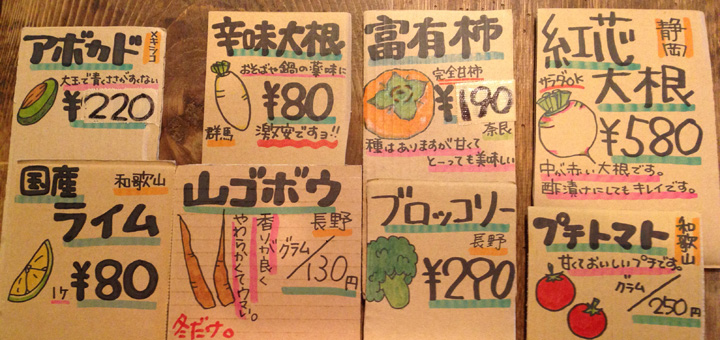 アボカド
メキシコ
大玉で貴ささがすくない
¥220
辛味大根
おそばや鍋の薬味に
¥80
群馬
激安ですョ!!
富有柿
完全甘柿
¥190
奈良
種はありますが甘くて
とーっても美味しい
紅芯
静岡
大根
サラダOK
¥580
中が赤い大根です。
酢漬けにしてもキレイです。
国産
和歌山
ライム
¥80
1ケ
山ゴボウ
長野
香りが良く
やわらかくてウマい。
グラム/130円
冬だけ。
ブロッコリー
長野
¥290
プチトマト
和歌山
甘くておいしいプチです。
グラム/250円